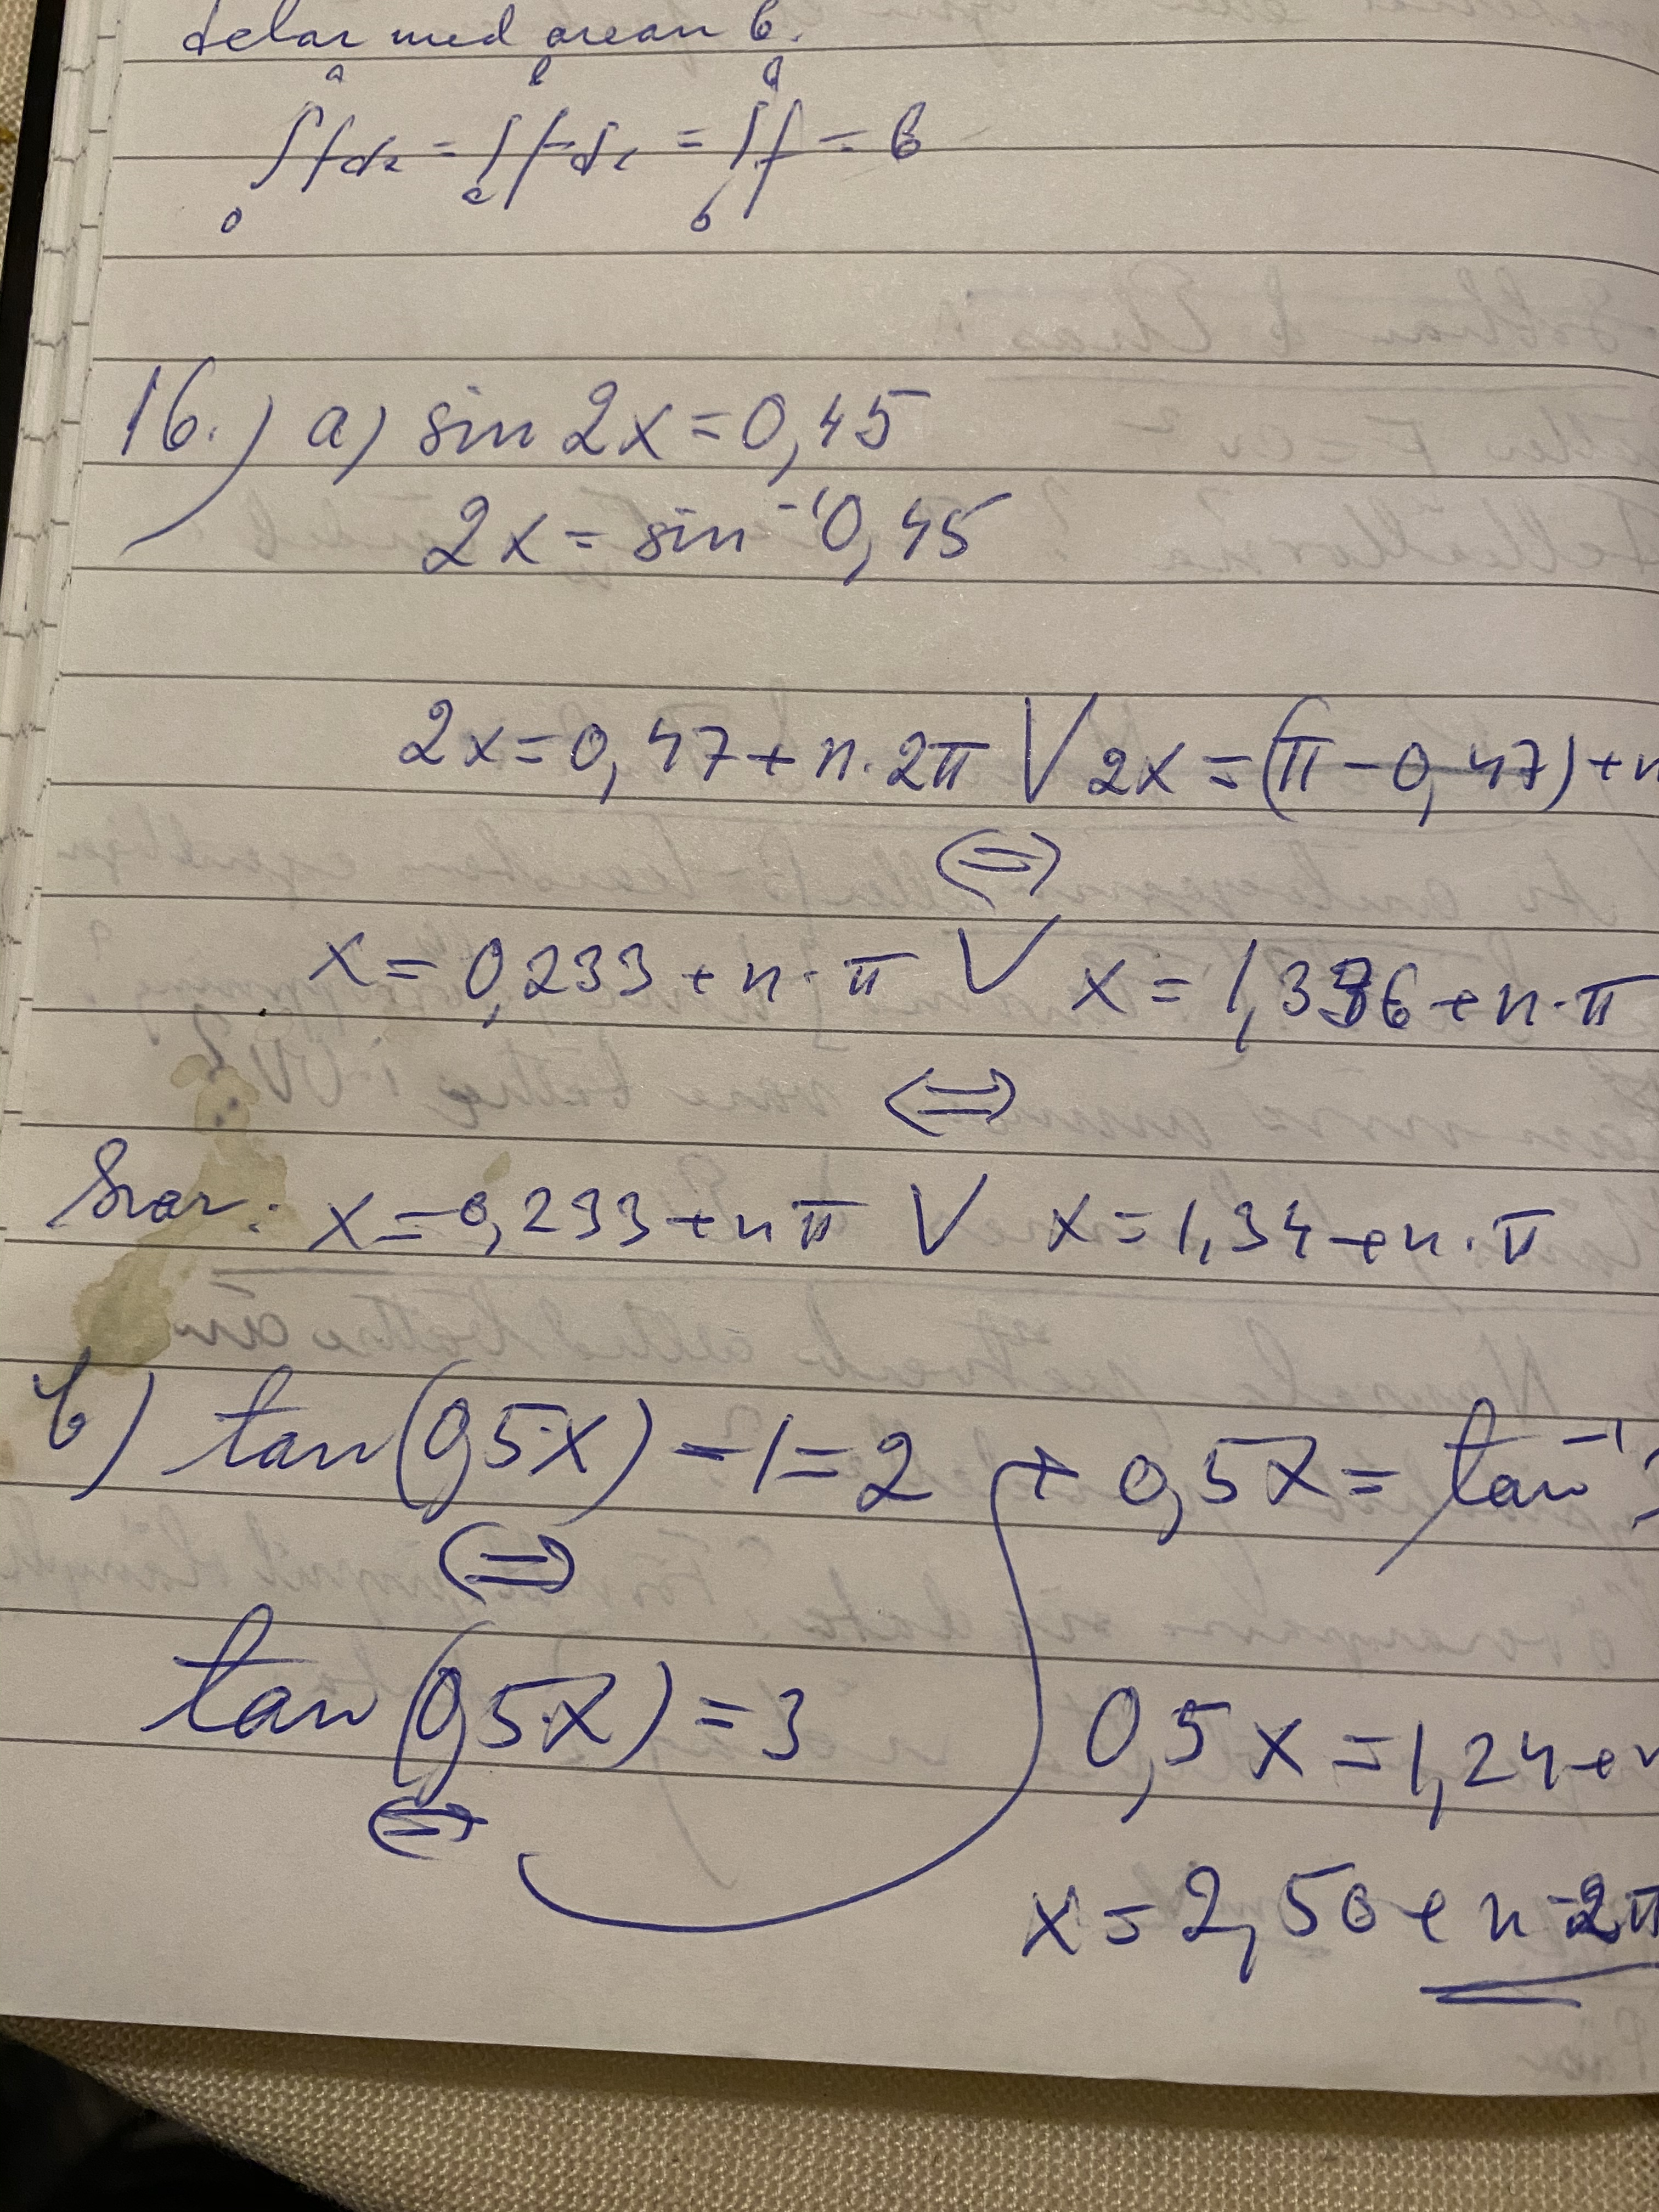 delar med arean 6.
∫₀ᵃ f dx = ∫ₐᵇ f dx = ∫ f = 6
16.) a) sin 2x = 0,45
2x = sin⁻¹ 0,45
2x = 0,47 + n·2π ∨ 2x = (π − 0,47) + n
⇔
x = 0,233 + n·π ∨ x = 1,336 + n·π
⇔
Svar: x = 0,233 + nπ ∨ x = 1,34 + n·π
b) tan(0,5·x) − 1 = 2
⇔
tan(0,5·x) = 3
⇔
0,5x = tan⁻¹ 3
0,5x = 1,24 + n
x = 2,50 + n·2π